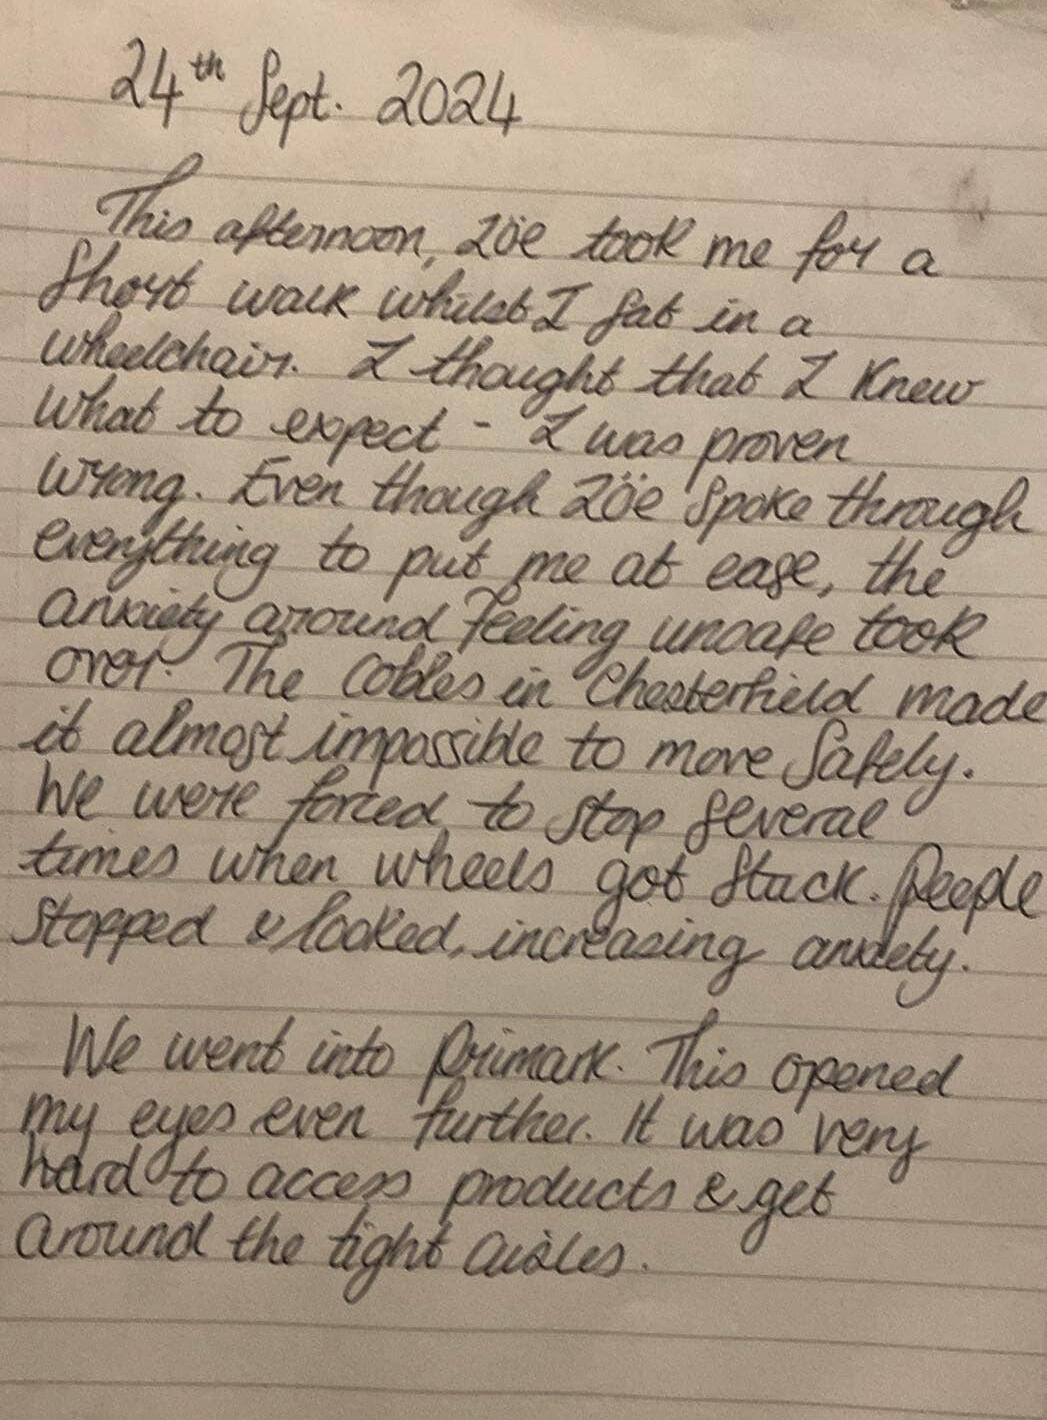 24th Sept. 2024
This afternoon, Zöe took me for a
short walk whilst I sat in a
wheelchair. I thought that I knew
what to expect - I was proven
wrong. Even though Zöe spoke through
everything to put me at ease, the
anxiety around feeling unsafe took
over. The cobles in Chesterfield made
it almost impossible to move safely.
We were forced to stop several
times when wheels got stuck. People
stopped & looked, increasing anxiety.
We went into Primark. This opened
my eyes even further. It was very
hard to access products & get
around the tight aisles.